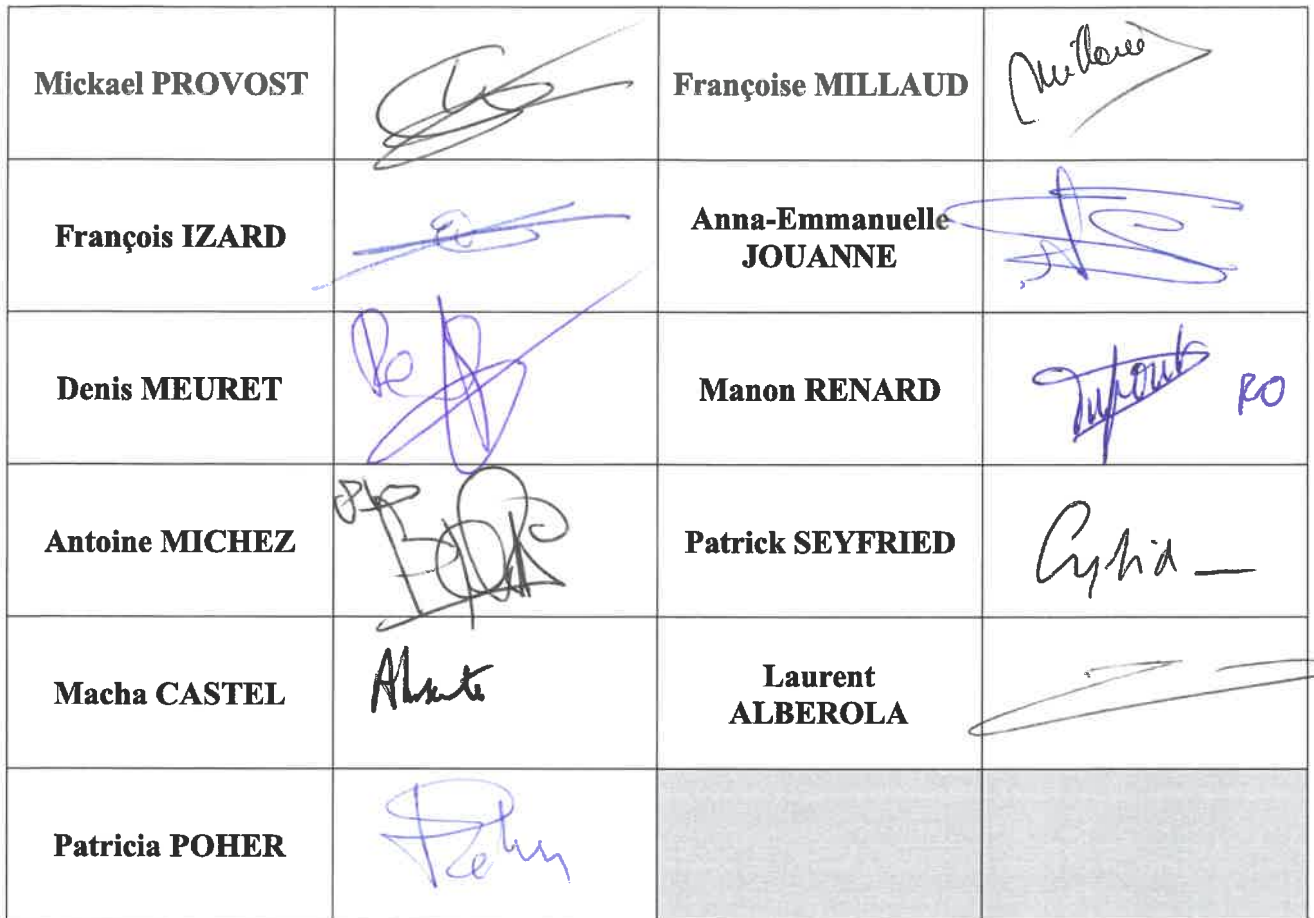 Mickael PROVOST
Françoise MILLAUD
François IZARD
Anna-Emmanuelle
JOUANNE
Denis MEURET
Manon RENARD
Antoine MICHEZ
Patrick SEYFRIED
Macha CASTEL
Absente
Laurent
ALBEROLA
Patricia POHER